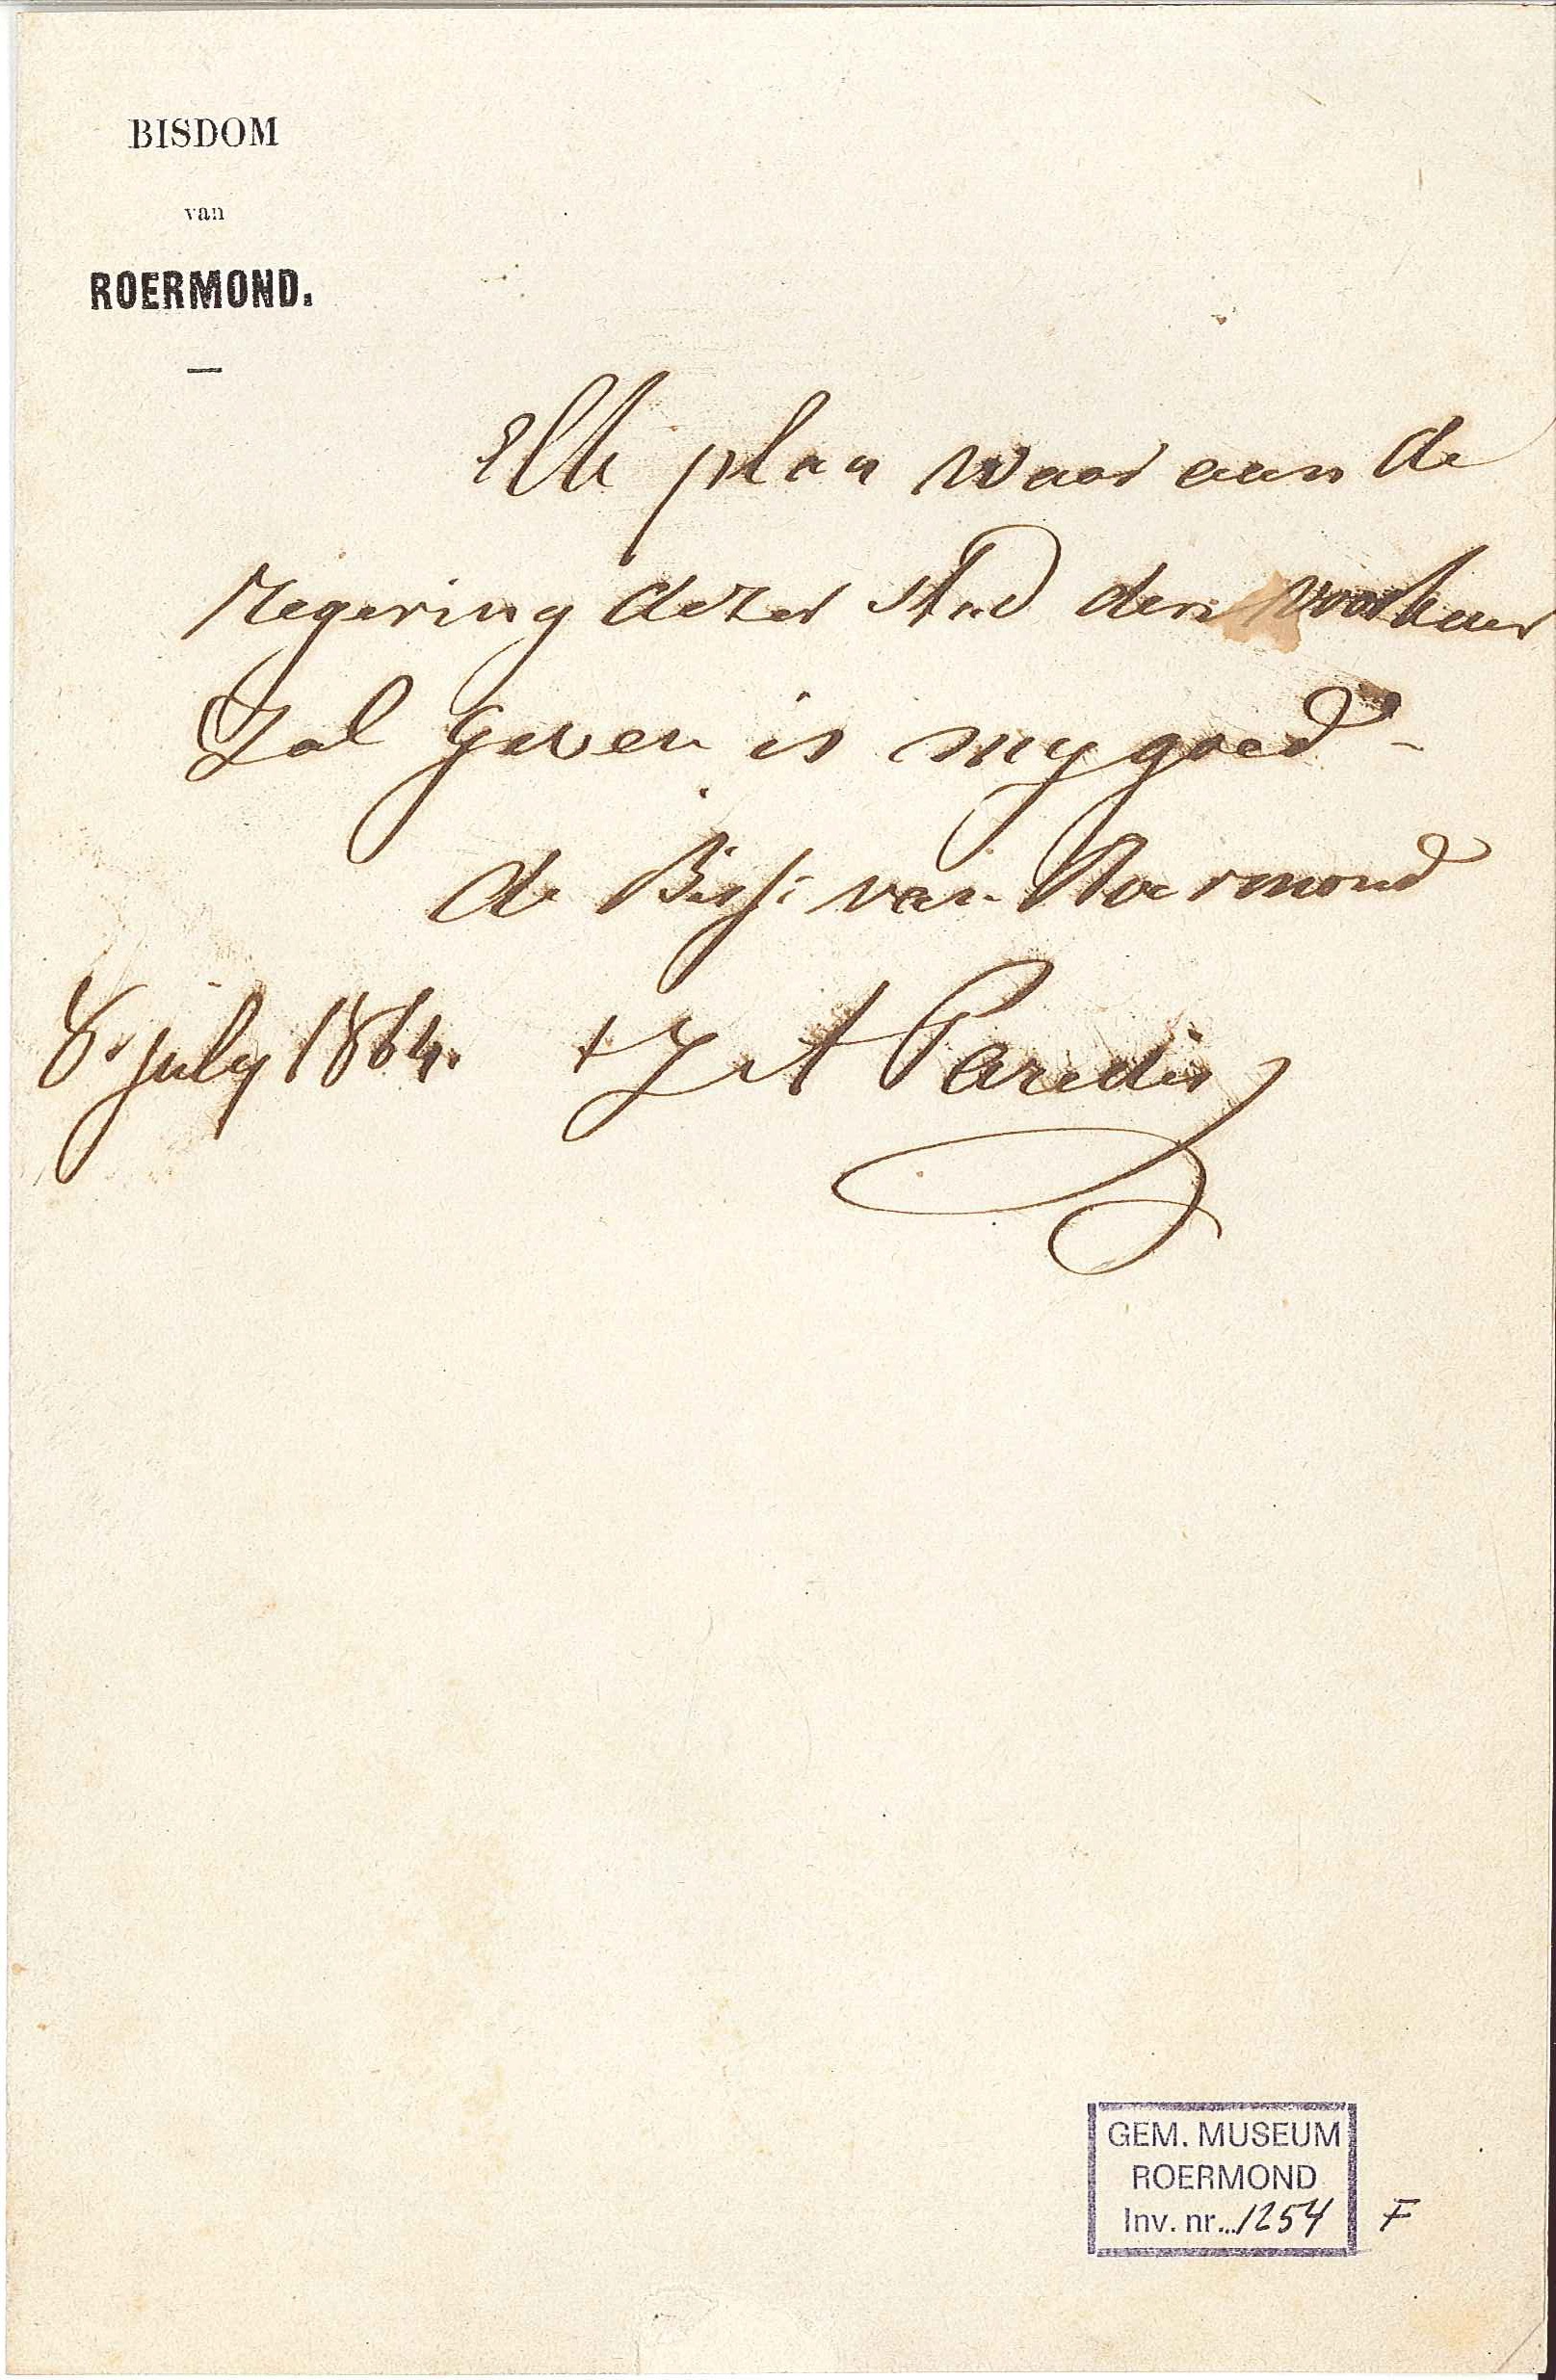 BISDOM
van
ROERMOND.
Elk plan waar aan de
regering dezer stad den voorkeur
zal geven is my goed -
de Bissc: van Roermond
8. july 1864. + J A Paredis
GEM. MUSEUM
ROERMOND
Inv. nr. 1254 F